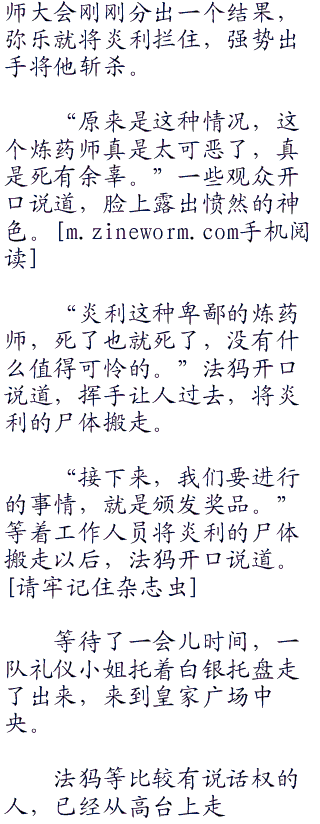 师大会刚刚分出一个结果，
弥乐就将炎利拦住，强势出
手将他斩杀。
“原来是这种情况，这
个炼药师真是太可恶了，真
是死有余辜。”一些观众开
口说道，脸上露出愤然的神
色。[m.zineworm.com手机阅
读]
“炎利这种卑鄙的炼药
师，死了也就死了，没有什
么值得可怜的。”法犸开口
说道，挥手让人过去，将炎
利的尸体搬走。
“接下来，我们要进行
的事情，就是颁发奖品。”
等着工作人员将炎利的尸体
搬走以后，法犸开口说道。
[请牢记住杂志虫]
等待了一会儿时间，一
队礼仪小姐托着白银托盘走
了出来，来到皇家广场中
央。
法犸等比较有说话权的
人，已经从高台上走